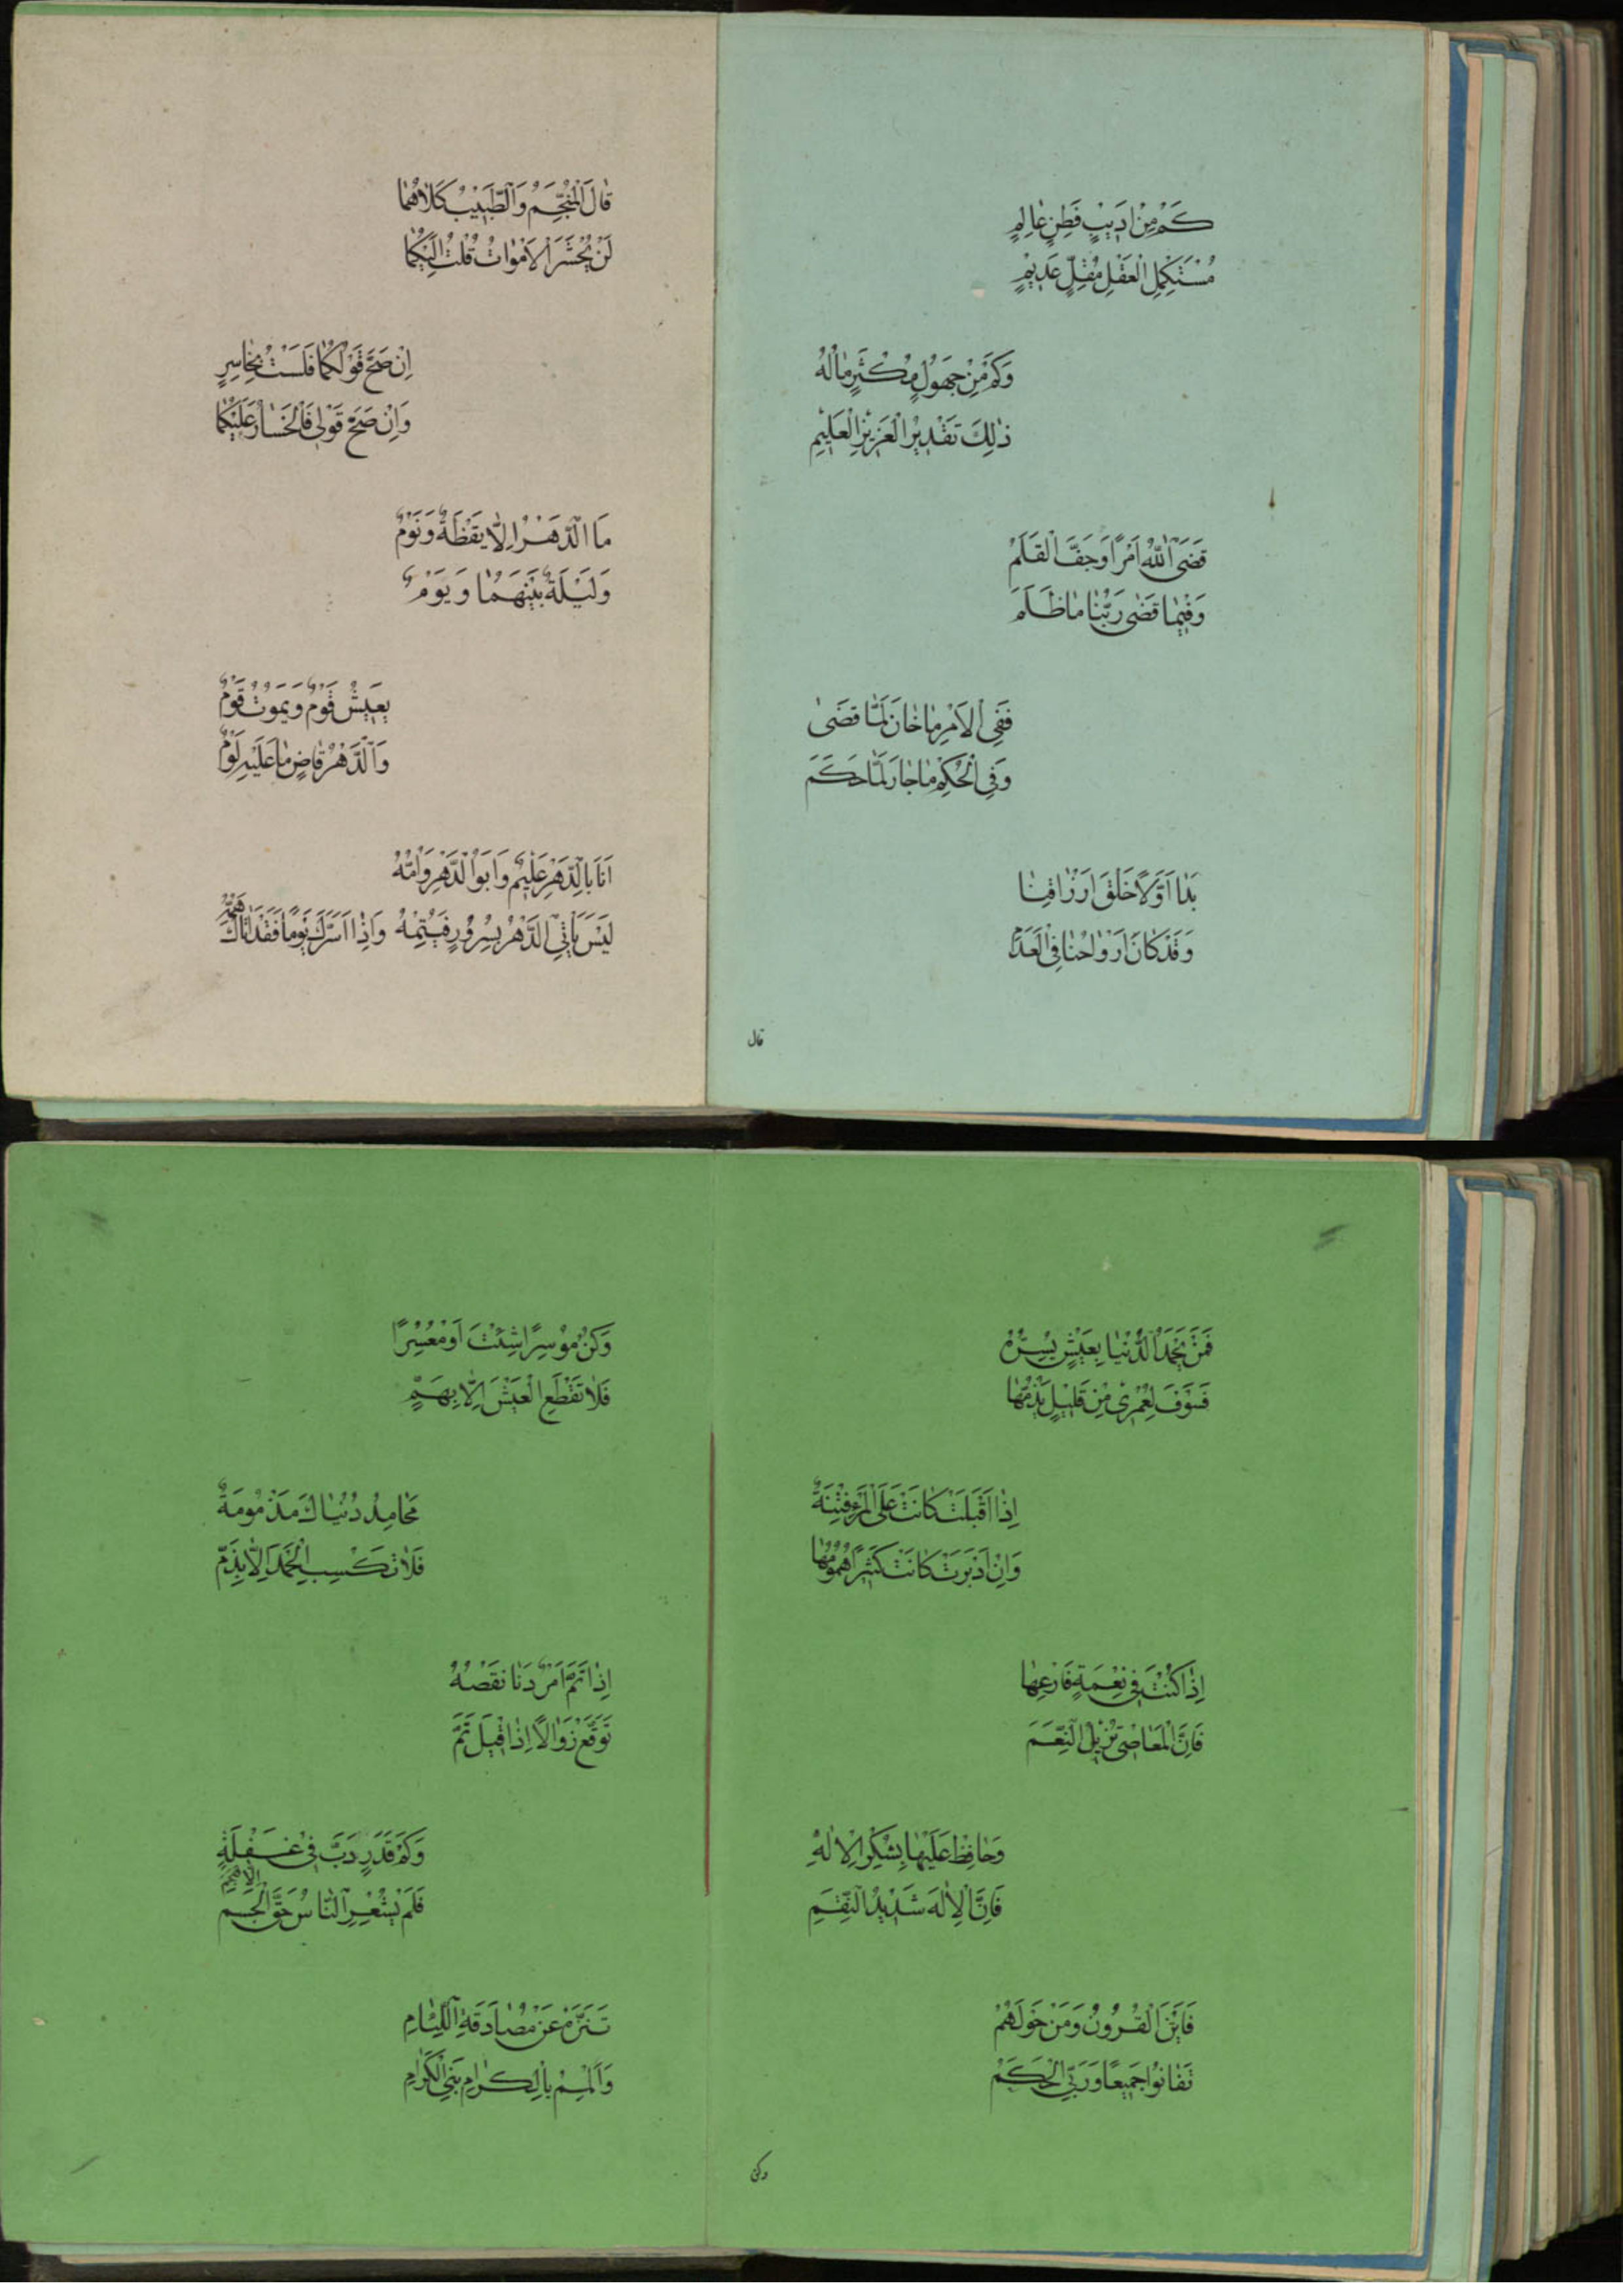 كَمْ مِنْ اَدِيْبٍ فَطِنٍ عٰالِمٍ
مُسْتَكْمِلِ الْعَقْلِ مُقِلٍّ عَدِيْمٍ
وَكَمْ مِنْ جَهُوْلٍ مُكْثِرٍ مٰالُهُ
ذٰلِكَ تَقْدِيْرُ الْعَزِيْزِ الْعَلِيْمِ
قَضَى اللّٰهُ اَمْرًا وَجَفَّ الْقَلَمْ
وَفِيْمٰا قَضٰى رَبُّنٰا مٰا ظَلَمَ
فَفِى الْاَمْرِ مٰا خٰانَ لَمَّا قَضَىٰ
وَفِى الْحُكْمِ مٰا جٰارَ لَمَّا حَكَمَ
بَدٰا اَوَّلًا خَلْقَ اَرْزٰاقِنٰا
وَقَدْ كٰانَ اَرْوٰاحُنٰا فِى الْعَدَمْ
قال
قٰالَ الْمُنَجِّمُ وَالطَّبِيْبُ كِلَاهُمٰا
لَنْ يُحْشَرَ الْاَمْوٰاتُ قُلْتُ اِلَيْكُمٰا
اِنْ صَحَّ قَوْلُكُمٰا فَلَسْتُ بِخٰاسِرٍ
وَاِنْ صَحَّ قَوْلِى فَالْخَسٰارُ عَلَيْكُمٰا
مَا الدَّهْرُ اِلَّا يَقْظَةٌ وَنَوْمٌ
وَلَيْلَةٌ بَيْنَهُمٰا وَيَوْمٌ
يَعِيْشُ قَوْمٌ وَيَمُوْتُ قَوْمٌ
وَالدَّهْرُ قٰاضٍ مٰا عَلَيْهِ لَوْمٌ
اَنَا بِالدَّهْرِ عَلِيْمٌ وَاَبُو الدَّهْرِ وَاُمُّهُ
لَيْسَ يَأْتِى الدَّهْرُ بِسُرُوْرٍ فَيُتِمُّهُ وَاِذٰا اَسَرَّكَ يَوْمًا فَغَدًا يَأْتِيْكَ هَمُّهُ
فَمَنْ يَحْمَدُ الدُّنْيٰا بِعَيْشٍ يَسُرُّهُ
فَسَوْفَ لَعَمْرِىْ مِنْ قَلِيْلٍ يَذُمُّهٰا
اِذٰا اَقْبَلَتْ كٰانَتْ عَلَى الْمَرْءِ فِتْنَةٌ
وَاِنْ اَدْبَرَتْ كٰانَتْ كَثِيْرًا هُمُوْمُهٰا
اِذٰا كُنْتَ فِى نِعْمَةٍ فَارْعَهٰا
فَاِنَّ الْمَعٰاصِى تُزِيْلُ النِّعَمَ
وَحٰافِظْ عَلَيْهٰا بِشُكْرِ الْاِلٰهِ
فَاِنَّ الْاِلٰهَ شَدِيْدُ النِّقَمِ
فَاَيْنَ الْقُرُوْنُ وَمَنْ حَوْلَهُمْ
تَفٰانَوْا جَمِيْعًا وَرَبِّى الْحَكَمْ
وكن
وَكُنْ مُوْسِرًا شِئْتَ اَوْ مُعْسِرًا
فَلٰا تَقْطَعِ الْعَيْشَ اِلَّا بِهَمٍّ
مَحٰامِدُ دُنْيٰاكَ مَذْمُوْمَةٌ
فَلٰا تَكْسِبِ الْحَمْدَ اِلَّا بِذَمٍّ
اِذٰا تَمَّ اَمْرٌ دَنٰا نَقْصُهُ
تَوَقَّعْ زَوٰالًا اِذٰا قِيْلَ تَمَّ
وَكَمْ قَدَرٍ دَبَّ فِىْ غَفْلَةٍ
فَلَمْ يَشْعُرِ النّٰاسُ حَتَّى الْهَجَمْ
تَنَزَّهْ عَنْ مُصٰادَقَةِ اللِّئٰامِ
وَاَلْمِمْ بِالْكِرٰامِ بَنِى الْكِرٰامِ